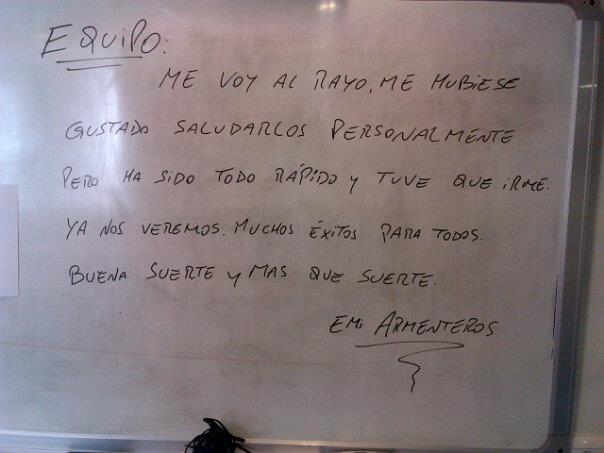 EQUIPO:
ME VOY AL RAYO, ME HUBIESE
GUSTADO SALUDARLOS PERSONALMENTE
PERO HA SIDO TODO RÁPIDO Y TUVE QUE IRME.
YA NOS VEREMOS. MUCHOS ÉXITOS PARA TODOS.
BUENA SUERTE Y MAS QUE SUERTE.
EMI ARMENTEROS